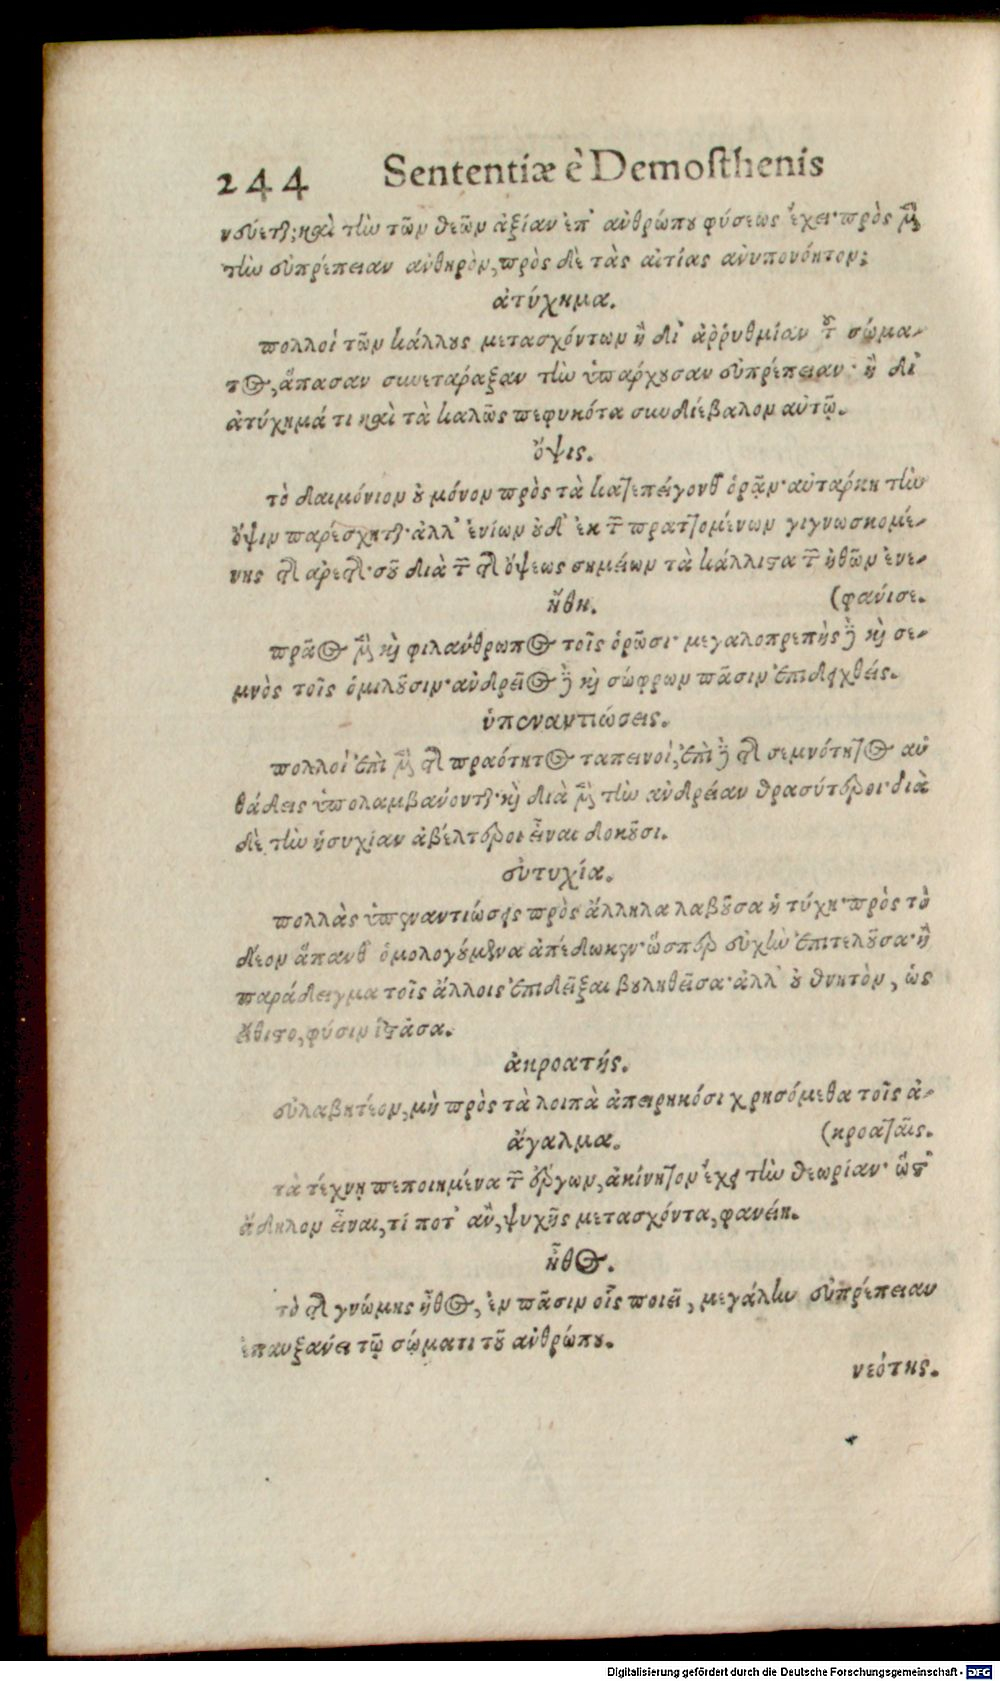 244 Sententiæ è Demosthenis
νεύεται; καὶ τὴν τῶν θεῶν ἀξίαν ἐπ' ἀνθρώπου φύσεως ἔχει· πρὸς μὲν
τὴν εὐπρέπειαν ἀνθηρὸν, πρὸς δὲ τὰς αἰτίας ἀνυπονόητον;
ἀτύχημα.
πολλοὶ τῶν κάλλους μετασχόντων ἢ δι' ἀῤῥυθμίαν τοῦ σώμα-
τος, ἅπασαν συνετάραξαν τὴν ὑπάρχουσαν εὐπρέπειαν· ἢ δι'
ἀτύχημά τι καὶ τὰ καλῶς πεφυκότα συνδιέβαλον αὐτῷ.
ὄψις.
τὸ δαιμόνιον οὐ μόνον πρὸς τὰ κατεπείγονθ' ὁρᾷν· αὐτάρκη τὴν
ὄψιν παρέσχηται· ἀλλ' ἐνίων οὐδ' ἐκ τῶν πραττομένων γιγνωσκομέ-
νης τῆς ἀρετῆς· σοῦ διὰ τῶν τῆς ὄψεως σημείων τὰ κάλλιστα τῶν ἠθῶν ἐνε-
ἤθη. (φάνισε.
πρᾶος μὲν καὶ φιλάνθρωπος τοῖς ὁρῶσι· μεγαλοπρεπὴς δὲ καὶ σε-
μνὸς τοῖς ὁμιλοῦσιν· ἀνδρεῖος δὲ καὶ σώφρων πᾶσιν ἐπιδειχθείς.
ὑπεναντιώσεις.
πολλοὶ ἐπὶ μὲν τῆς πραότητος ταπεινοὶ, ἐπὶ δὲ τῆς σεμνότητος αὐ
θάδεις ὑπολαμβάνονται· καὶ διὰ μὲν τὴν ἀνδρείαν θρασύτεροι· διὰ
δὲ τὴν ἡσυχίαν ἀβέλτεροι εἶναι δοκοῦσι.
εὐτυχία.
πολλὰς ὑπεναντιώσεις πρὸς ἄλληλα λαβοῦσα ἡ τύχη· πρὸς τὸ
δέον ἅπανθ' ὁμολογούμενα ἀπέδωκεν· ὥσπερ εὐχὴν ἐπιτελοῦσα· ἢ
παράδειγμα τοῖς ἄλλοις ἐπιδεῖξαι βουληθεῖσα· ἀλλ' οὐ θνητὸν, ὡς
εἴθιστο, φύσιν ἱστᾶσα.
ἀκροατής.
εὐλαβητέον, μὴ πρὸς τὰ λοιπὰ ἀπειρηκόσι χρησόμεθα τοῖς ἀ-
ἄγαλμα. (κροαταῖς.
τὰ τέχνῃ πεποιημένα τῶν ἔργων, ἀκίνητον ἔχει τὴν θεωρίαν· ὥστ'
ἄδηλον εἶναι, τί ποτ' ἂν, ψυχῆς μετασχόντα, φανείη.
ἦθος.
τὸ τῆς γνώμης ἦθος, ἐν πᾶσιν οἷς ποιεῖ, μεγάλην εὐπρέπειαν
ἐπαυξάνει τῷ σώματι τοῦ ἀνθρώπου.
νεότης.
Digitalisierung gefördert durch die Deutsche Forschungsgemeinschaft - DFG